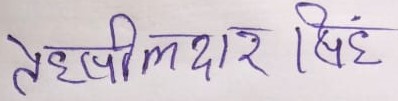 तेहसीलदार सिंह